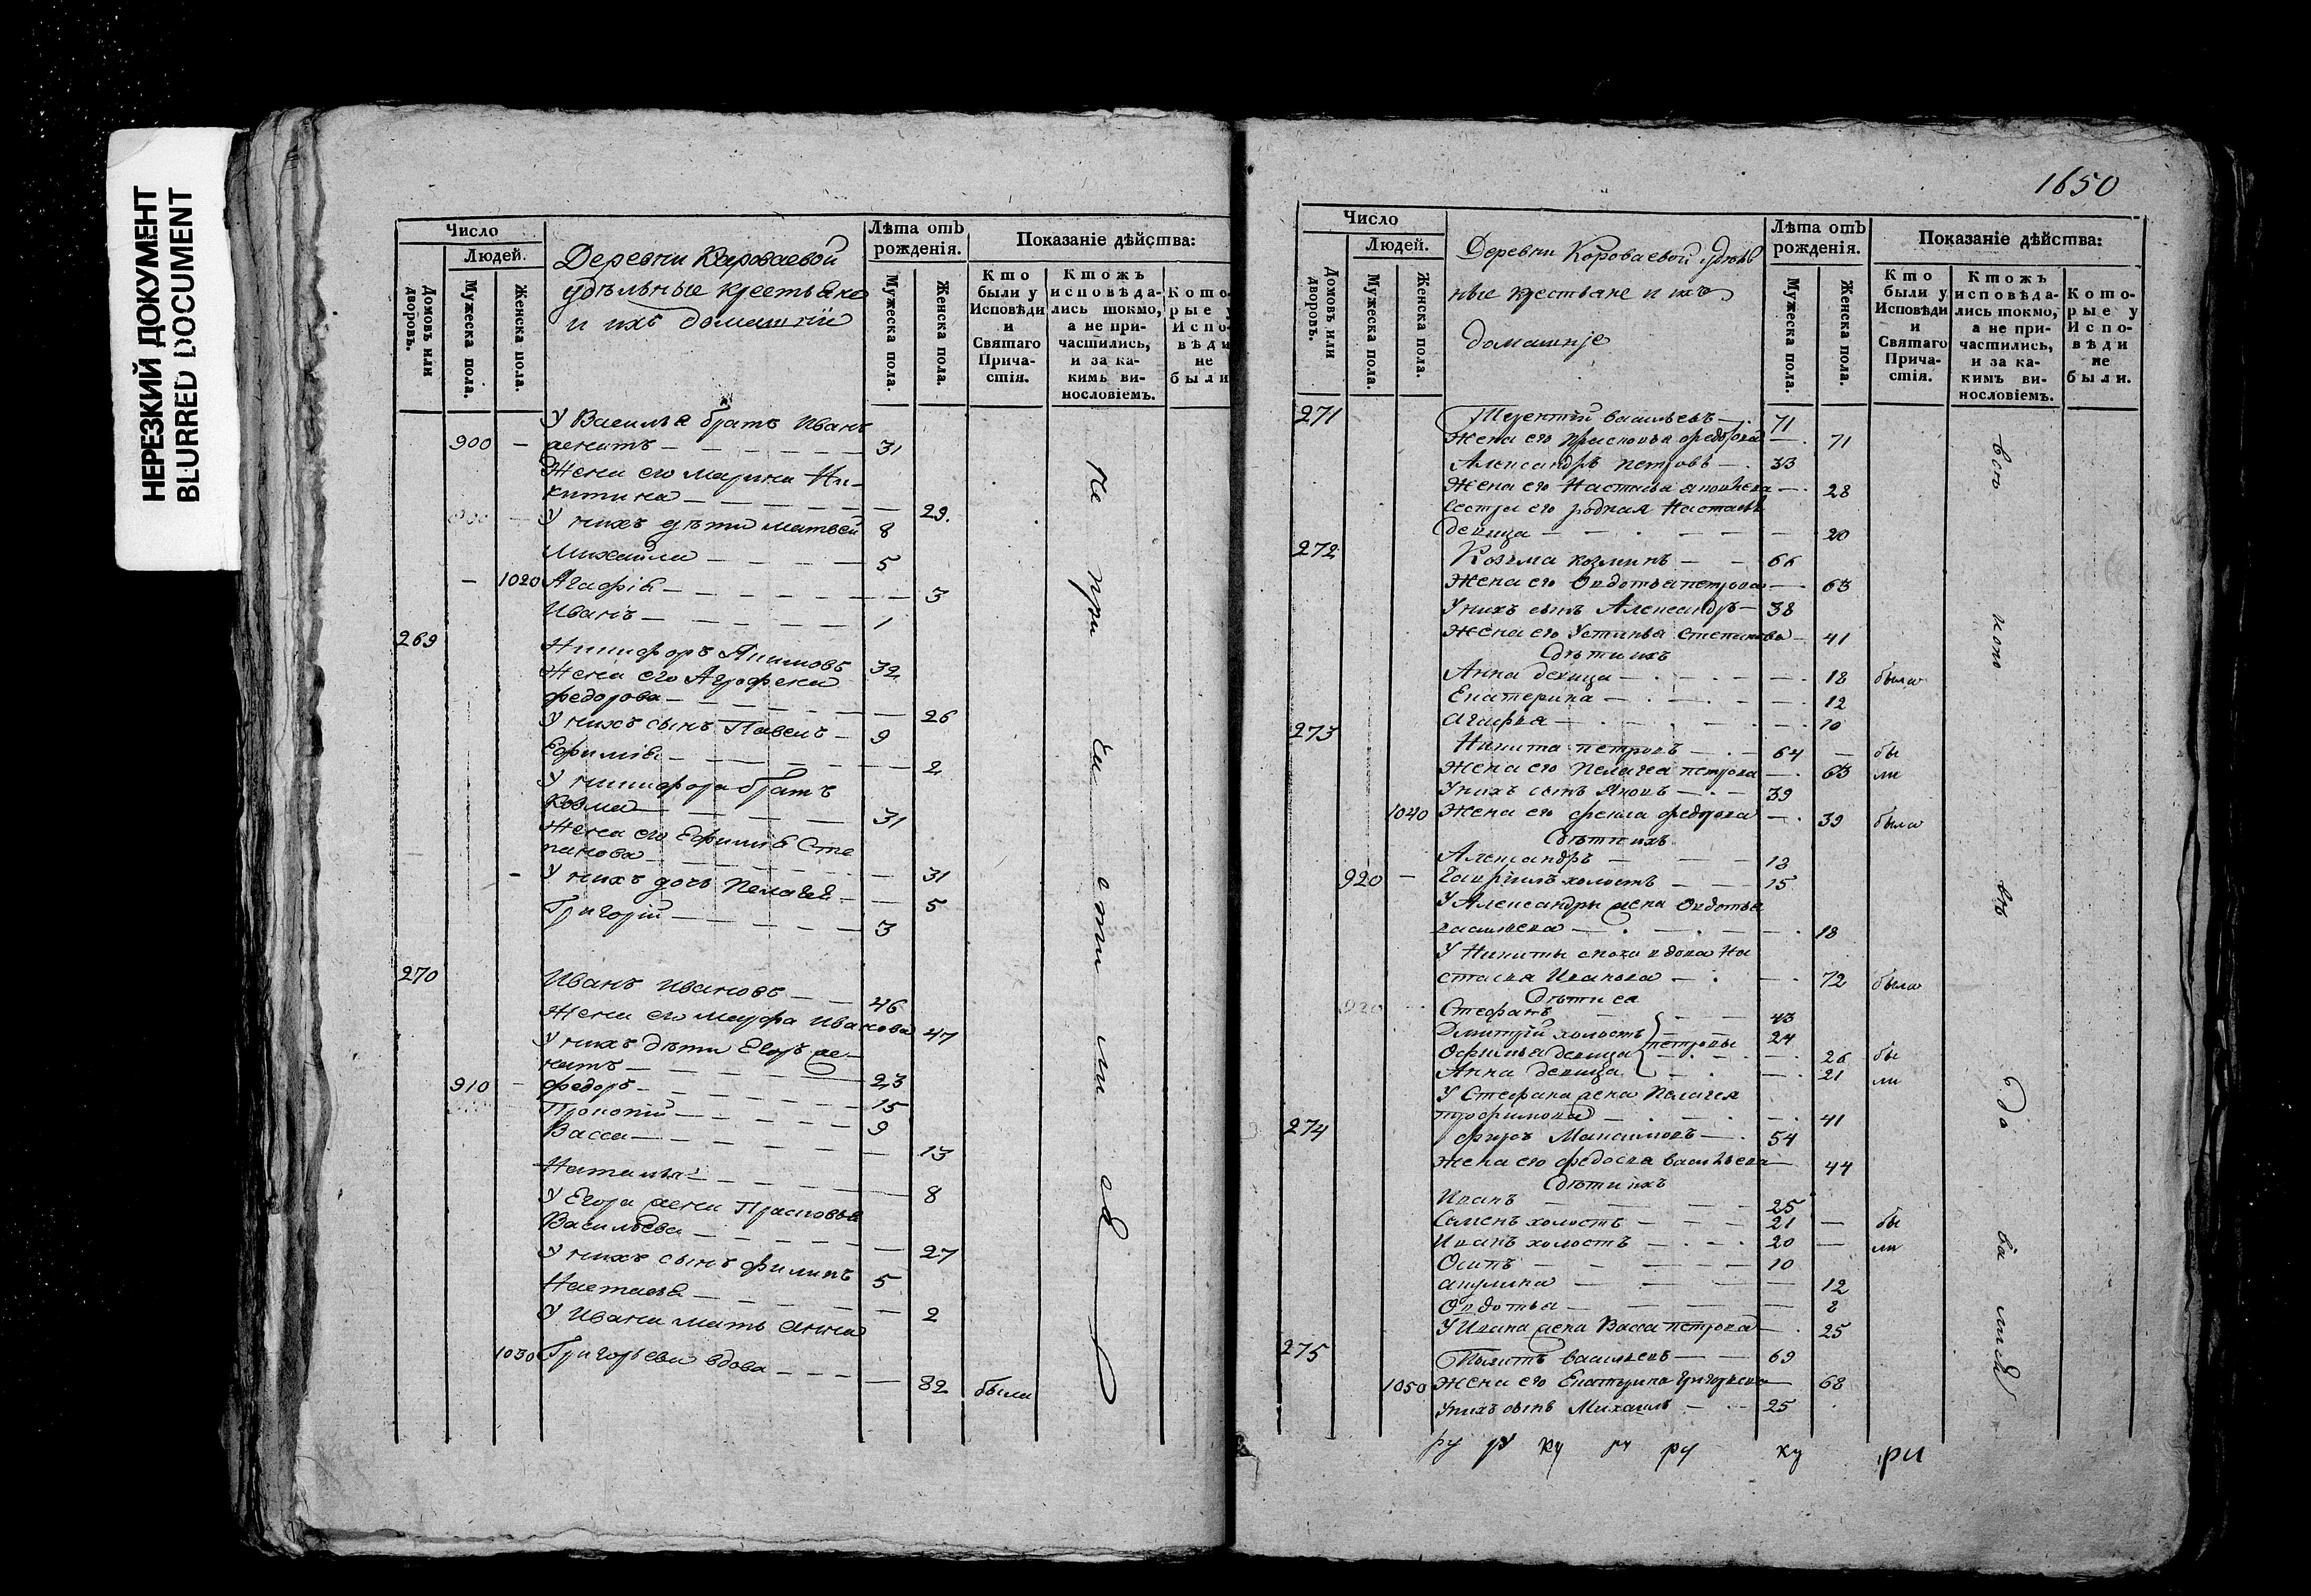 НЕРЕЗКИЙ ДОКУМЕНТ
BLURRED DOCUMENT
Число
Людей.
Домовъ или дворовъ.
Мужеска пола.
Женска пола.
Деревни Короваевой
удѣльные крестьяне
и ихъ домашніи
Лѣта отъ рожденія.
Мужеска пола.
Женска пола.
Показаніе дѣйства:
Кто были у Исповѣди и Святаго Причастія.
Ктожъ исповѣдались токмо, а не причастились, и за какимъ винословіемъ.
Которые у Исповѣди не были
У Василья братъ Иванъ
900 — женатъ — 31
Жена его Марина Ни-
китина — 29.
У нихъ дѣти Матвей 8
Михайла — 5
— 1020 Агафія — 3
Иванъ — 1
269 Никифоръ Акимовъ 32
Жена его Аграфена
Федорова — 26
У нихъ сынъ Павелъ — 9
Ефимія — 2
У Никифора братъ
Козма — 31
Жена его Ефимія Сте
панова — 31
У нихъ дочь Пелагея — 5
Григорій — 3
270 Иванъ Ивановъ — 46
Жена его Марфа Иванова 47
У нихъ дѣти Егоръ же-
натъ — 23
910 — Федоръ — 15
Прокопій — 9
Васса — 13
Наталья — 8
У Егора жена Прасковья
Васильева — 27
У нихъ сынъ Филипъ 5
Настасья — 2
У Ивана мать Анна
1030 Григорьева вдова — 82 были
1650
Число
Людей.
Домовъ или дворовъ.
Мужеска пола.
Женска пола.
Деревни Короваевой удѣль
ные крестьяне и ихъ
домашніе
Лѣта отъ рожденія.
Мужеска пола.
Женска пола.
Показаніе дѣйства:
Кто были у Исповѣди и Святаго Причастія.
Ктожъ исповѣдались токмо, а не причастились, и за какимъ винословіемъ.
Которые у Исповѣди не были.
271 Терентій Васильевъ — 71
Жена его Прасковья Федорова — 71
Александръ Петровъ — 33
Жена его Настасья — 28
Сестра его родная Настасья
девица — 20
272 Козьма Козминъ — 66
Жена его Овдотья Петрова — 63
У нихъ сынъ Александръ — 38
Жена его Устинья Степанова — 41
Сдѣти ихъ
Анна девица — 18 была
Екатерина — 12
Агафья — 10
273 Никита Петровъ — 64 — бы
Жена его Пелагея Петрова — 63 ли
У нихъ сынъ Яковъ — 39
1040 Жена его Фекла Федорова — 39 была
Сдѣти ихъ
Александръ — 18
920 — Гавріилъ холостъ — 15
У Александры жена Овдотья
Васильева — 18
У Никиты сноха вдова На
стасья Иванова — 72 была
Сдѣти ея
Стефанъ — 43
Дмитрій холостъ — 24
Петровы
Офимья девица — 26 бы
Анна девица — 21 ли
У Стефана жена Пелагея
Трофимова — 41
274 Фиръ Максимовъ — 54
Жена его Федосья Васильева — 44
Сдѣти ихъ
Иванъ — 25
Семенъ холостъ — 21 — бы
Иванъ холостъ — 20 — ли
Осипъ — 10
Акулина — 12
Овдотья — 8
У Ивана жена Васса Петрова — 25
275 Васильевъ — 69
1050 Жена его Екатерина Григорьева — 68
У нихъ сынъ Михаилъ — 25
ру ру ку ру ру ку ри